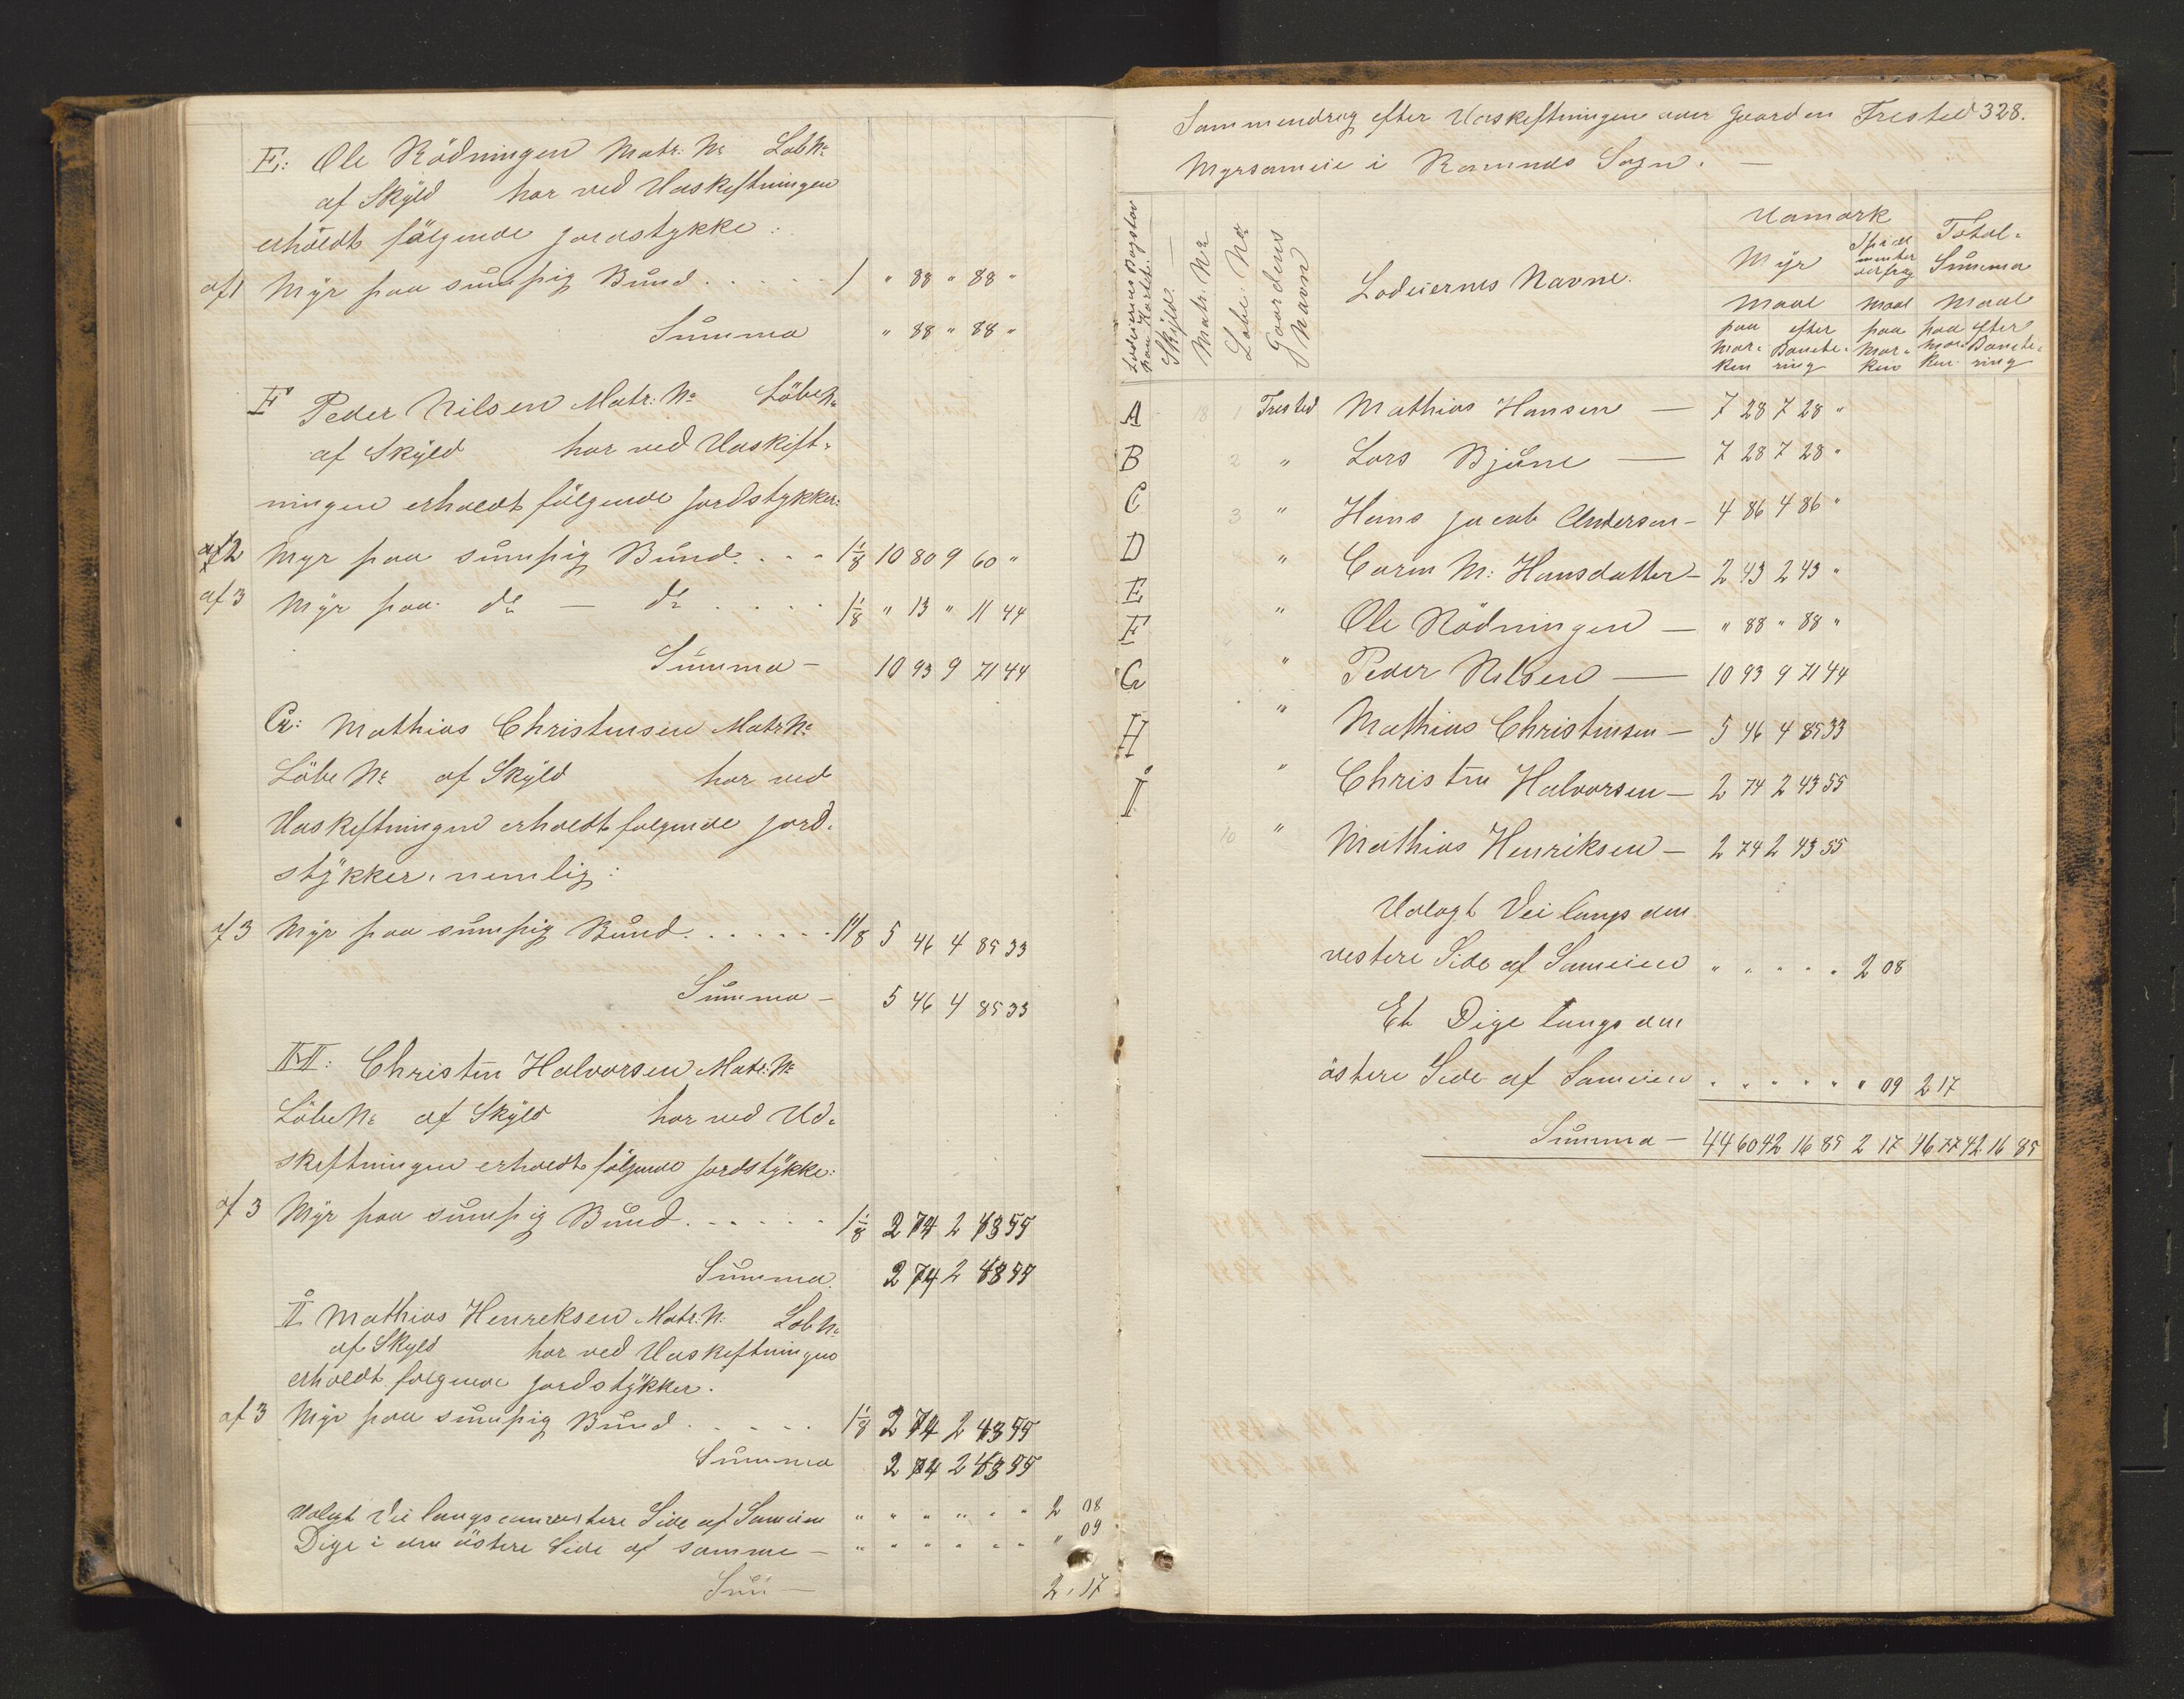 E: Ole Rödningen Matr: No LöbNo
af Skÿld har ved Udskiftningen
erholdt fölgende Jordstykke:
af 1 Mÿr paa sumpig Bund . . . . . 1 " 88 " 88 "
Summa " 88 " 88 "
F Peder Nilsen Matr: No LöbeNo
af Skÿld har ved Udskift-
ningen erholdt fölgende Jordstykker:
af 2 Myr paa sumpig Bund . . . 1 1/8 10 80 9 60 "
af 3 Mÿr paa do — do . . . . 1 1/8 " 13 " 11 44
Summa — 10 93 9 71 44
G: Mathias Christensen Matr No
Löbe No af Skÿld har ved
Udskiftningen erholdt folgende Jord-
stÿkker, nemlig:
af 3 Mÿr paa sumpig Bund . . . . . . 1 1/8 5 46 4 85 33
Summa — 5 46 4 85 33
H: Christen Halvorsen Matr: No
LöbeNo af Skÿld har ved Ud-
skiftningen erholdt fölgende Jordstÿkke:
af 3 Mÿr paa sumpig Bund . . . . . 1 1/8 2 74 2 43 55
Summa 2 74 2 43 55
I Mathias Henriksen Matr: N: Löb No
af Skyld har ved Udskiftningen
erholdt folgende Jordstÿkker.
af 3 Mÿr paa sumpig Bund . . . . . 1 1/8 2 74 2 43 55
Summa 2 74 2 43 55
Udlagt Vei langs den vestere Side af Sameien " " " " " " 2 08
Dige i den östere Side af samme — " " " " " " " 09
Sum — 2, 17
Sammendrag efter Udskiftningen over Gaarden Trested 328.
Myrsameie i Ramnes Sogn. —
Lodeiernes Bogstav paa Kartet.
Skÿld. —
Matr. No
Löbe. No
Gaardens Navn
Lodeiernes Navne.
Udmark
Mÿr
Total-
Summa
Maal Maal Maal
paa efter paa paa efter
Mar- Bonite- Mar- Mar- Bonite-
ken ring ken ken ring
A 18 1 Trested Mathias Hansen — 7 28 7 28 "
B 2 " Lars Bjune — 7 28 7 28 "
C 3 " Hans Jacob Andersen — 4 86 4 86 "
D " Caren M: Hansdatter — 2 43 2 43 "
E " Ole Rödningen — " 88 " 88 "
F " Peder Nilsen — 10 93 9 71 44
G " Mathias Christensen — 5 46 4 85 33
H " Christen Halvorsen — 2 74 2 43 55
I 10 " Mathias Henriksen — 2 74 2 43 55
Udlagt Vei langs den
vestere Side af Sameien " " " " " 2 08
Et Dige langs den
östere Side af Sameien " " " " " " 09 2 17
Summa — 44 60 42 16 85 2 17 46 77 42 16 85